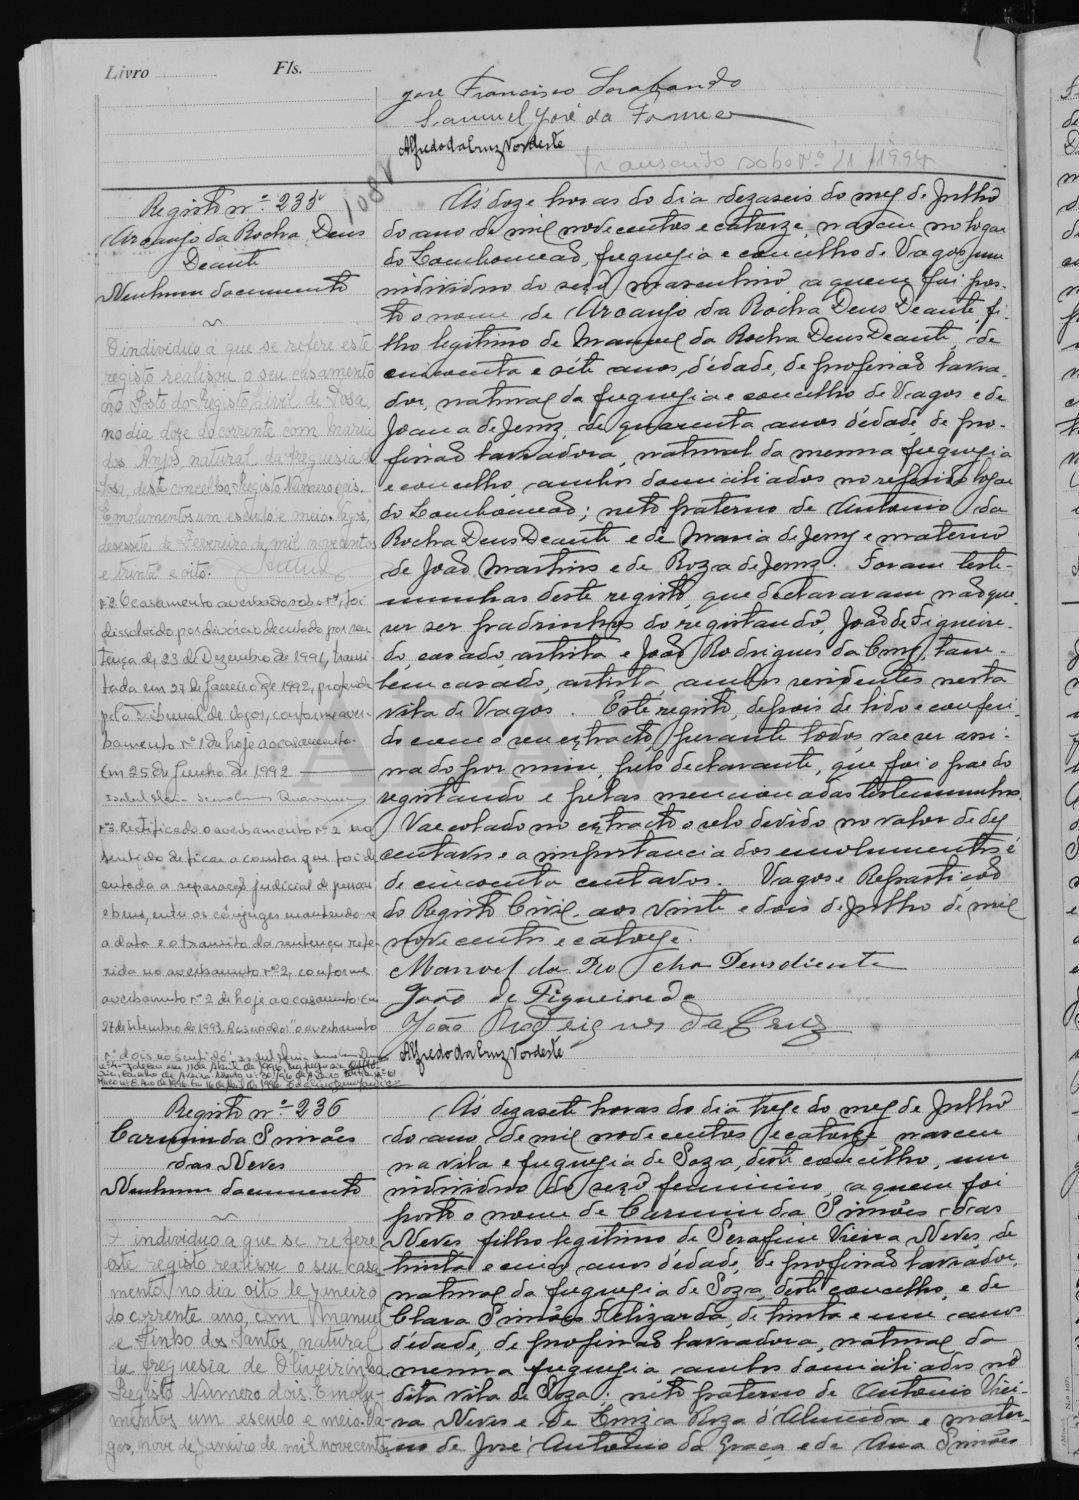 Livro Fls.
José Francisco Sarabando
Samuel José da Fonseca
Alfredo da Cruz Nordeste
Transcrito sob o Nº 11 / 1994
1082
Registo nº 235
Arcanjo da Rocha Deus
Deante
Nenhum documento
O indivíduo a que se refere este
registo realisou o seu casamento
no Posto do Registo Civil de Sosa,
no dia doze do corrente com Maria
dos Anjos natural da freguesia de
Sosa, deste concelho. Registo Número seis.
Emolumentos um escudo e meio. Vagos,
desessete de Fevereiro de mil novecentos
e trinta e oito.
nº 2. O casamento averbado sob o nº 1, foi
dissolvido por divórcio decretado por sen
tença de 23 de Dezembro de 1991, transi
tada em 27 de Janeiro de 1992, proferida
pelo Tribunal de Vagos, conforme aver-
bamento nº 1 de hoje ao casamento.
Em 25 de Junho de 1992
nº 3. Rectificado o averbamento nº 2 no
sentido de ficar a constar que foi de
cretada a separação judicial de pessoas
e bens, entre os cônjuges mantendo-se
a data e o transito da sentença refe-
rida no averbamento nº 2, conforme
averbamento nº 2 de hoje ao casamento. Em
27 de Setembro de 1993. Rasurado: "o averbamento
nº dois no sentido"
Às doze horas do dia dezaseis do mez de Julho
do ano de mil novecentos e catorze, nasceu no logar
do Lombomeão, freguesia e concelho de Vagos, um
individuo do sexo masculino, a quem foi pos-
to o nome de Arcanjo da Rocha Deus Deante, fi-
lho legitimo de Manuel da Rocha Deus Deante, de
cincoenta e séte anos d'edade, de profissão lavra-
dor, natural da freguesia e concelho de Vagos e de
Joana de Jesus, de quarenta anos d'edade de pro-
fissão lavradora, natural da mesma freguesia
e concelho, ambos domiciliados no referido logar
do Lombomeão; neto paterno de Antonio da
Rocha Deus Deante e de Maria de Jesus e materno
de João Martins e de Roza de Jesus. Foram teste-
munhas deste registo, que declararam não que-
rer ser padrinhos do registando, João de Figueire-
do, casado, artista e João Rodrigues da Cruz, tam-
bem casado, artista, ambos residentes nesta
vila de Vagos. Este registo, depois de lido e conferi-
do com o seu extracto, perante todos, vae ser assi-
nado por mim, pelo declarante, que foi o pae do
registando e pelas mencionadas testemunhas.
Vae colado no extracto o selo devido no valor de dez
centavos e a importancia dos emolumentos é
de cincoenta centavos. Vagos e Repartição
do Registo Civil, aos vinte e dois de Julho de mil
novecentos e catorze.
Manoel da Rocha Deusdiente
João de Figueiredo
João Rodrigues da Cruz
Alfredo da Cruz Nordeste
Registo nº 236
Carminda Simões
das Neves
Nenhum documento
O individuo a que se refere
este registo realisou o seu casa
mento, no dia oito de Janeiro
do corrente ano, com Manuel
de Pinho dos Santos, natural
da freguesia de Oliveirinha.
Registo Número dois. Emolu-
mentos um escudo e meio. Va-
gos, nove de Janeiro de mil novecentos
Às dezasete horas do dia treze do mez de Julho
do ano de mil novecentos e catorze, nasceu
na vila e freguesia de Soza, deste concelho, um
individuo do sexo feminino, a quem foi
posto o nome de Carminda Simões das
Neves, filho legitimo de Serafim Vieira Neves, de
trinta e cinco anos d'edade, de profissão lavrador,
natural da freguesia de Soza, deste concelho, e de
Clara Simões Felizarda, de trinta e um anos
d'edade, de profissão lavradora, natural da
mesma freguesia, ambos domiciliados na
dita vila de Soza; neto paterno de Antonio Viei-
ra Neves e de Roza d'Almeida e mater-
no de José Antonio da Graça e de Ana Simões